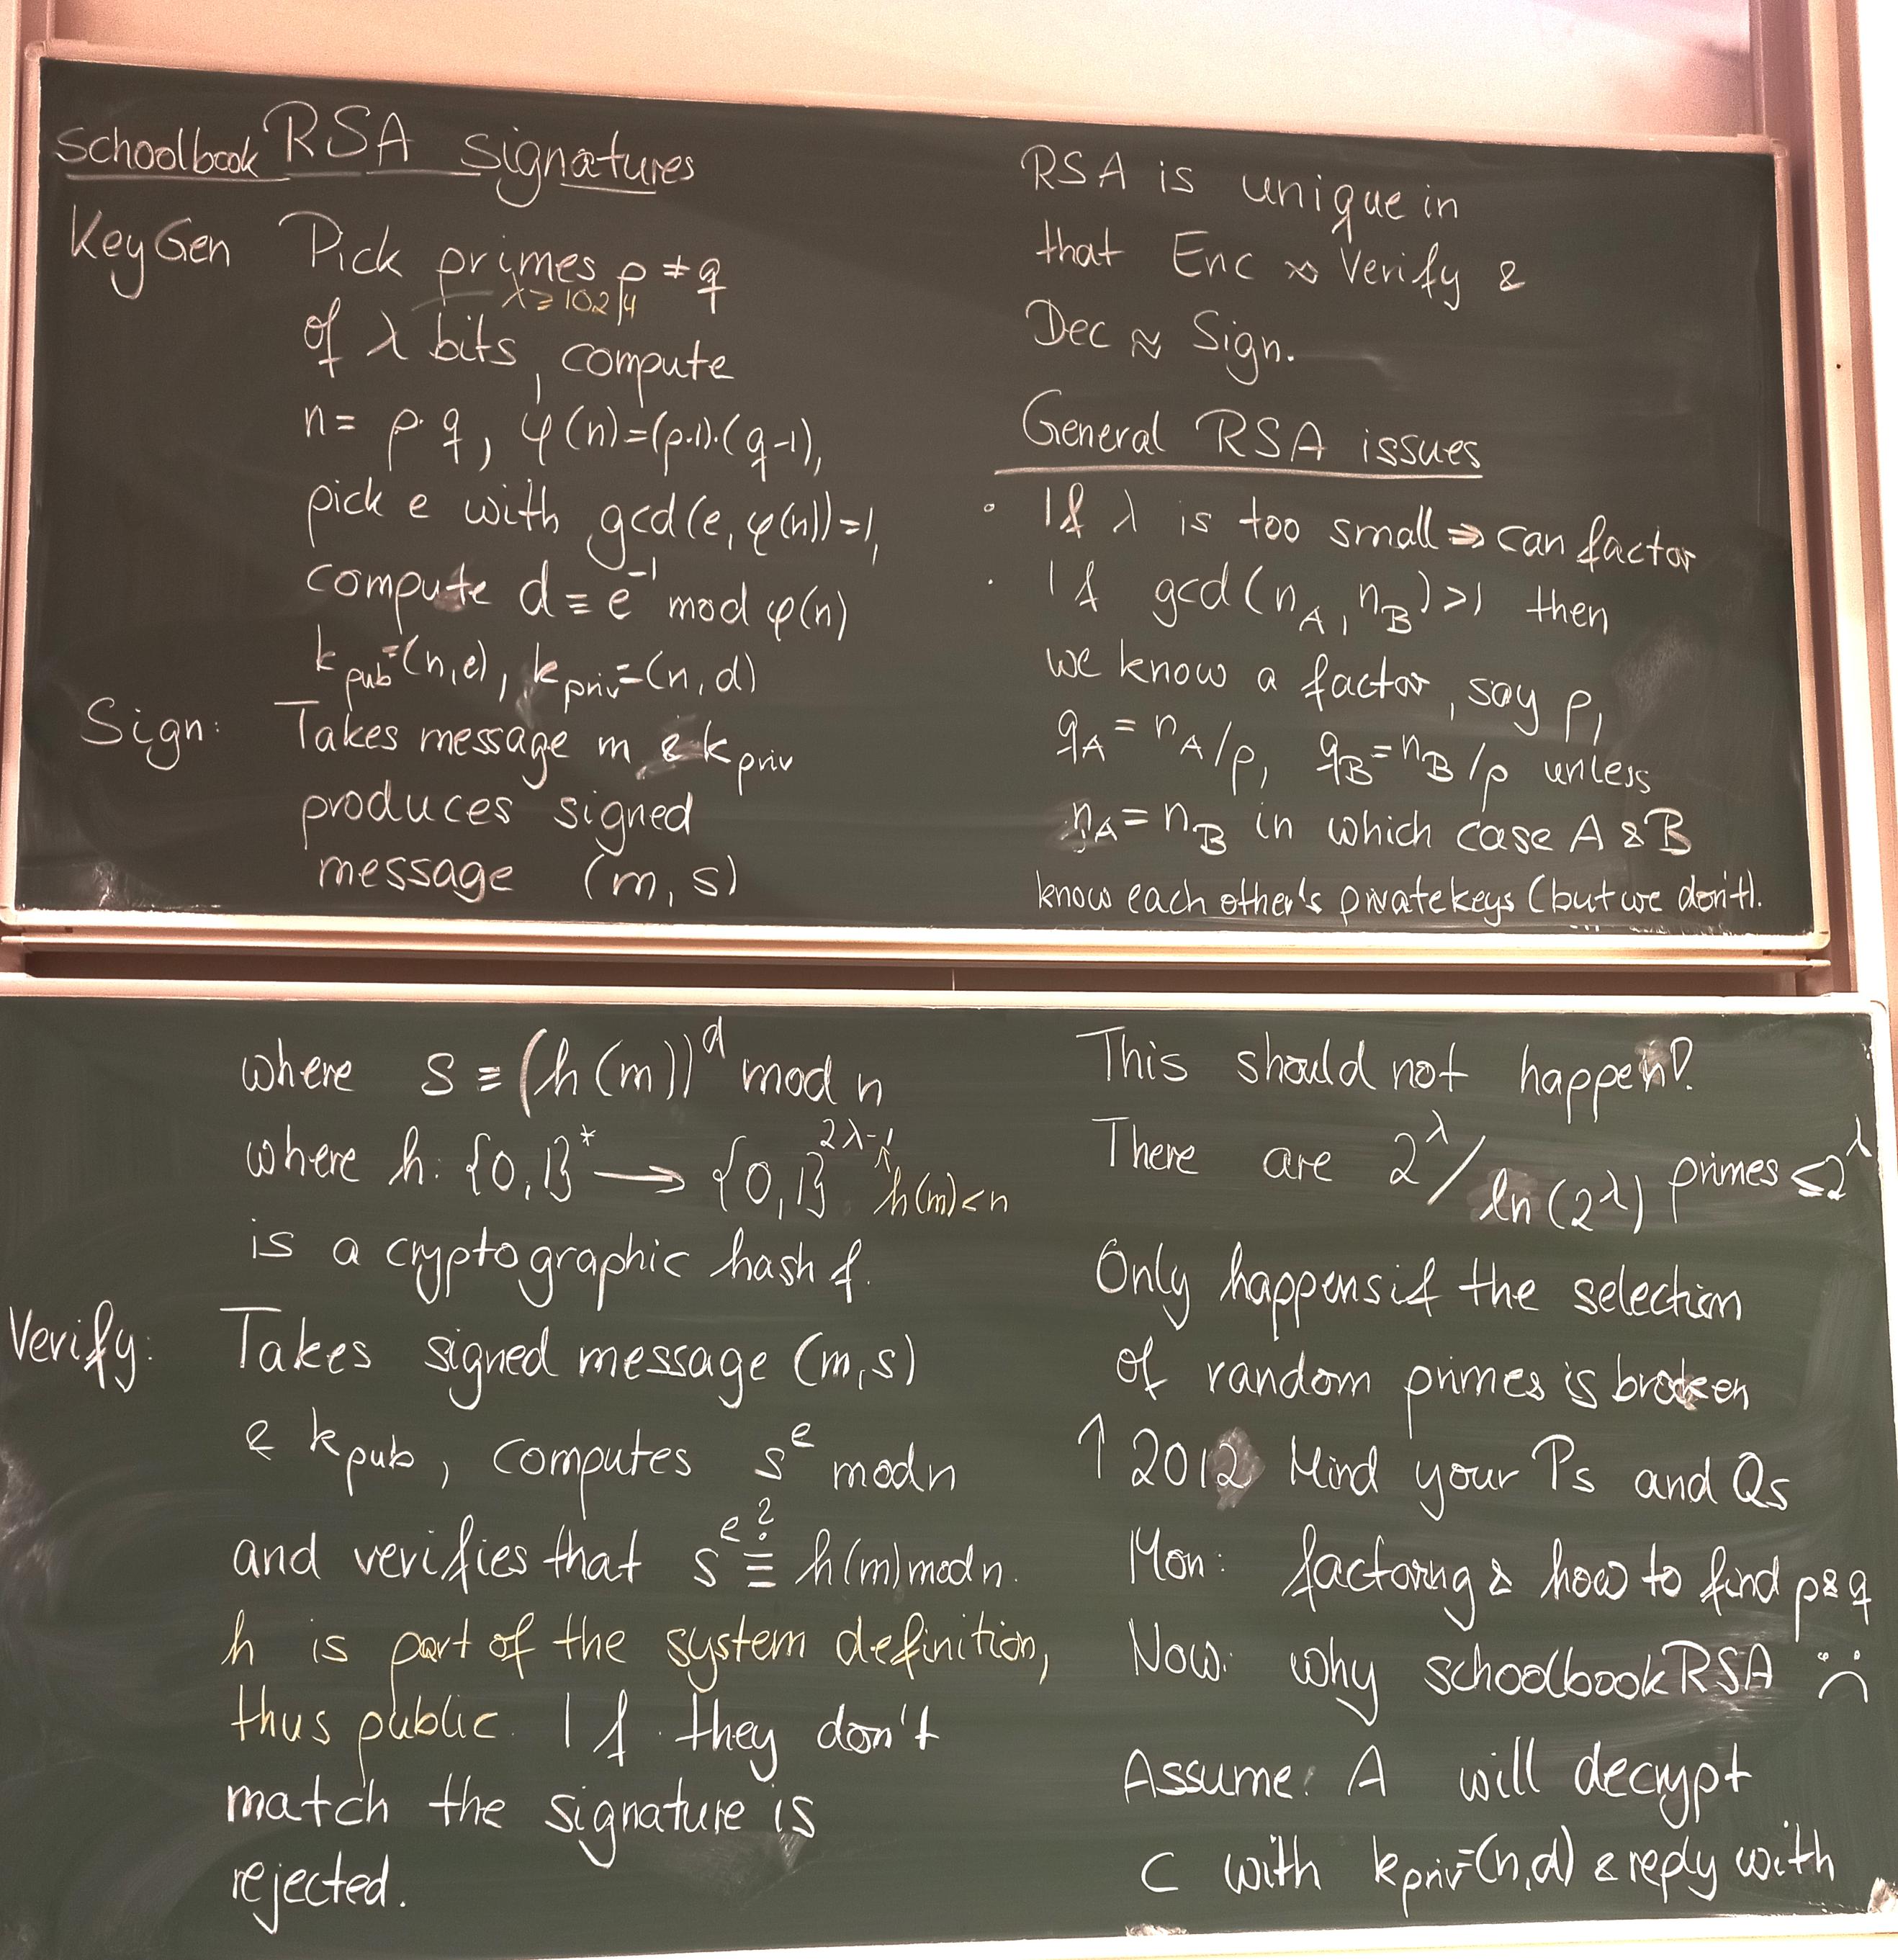 Schoolbook RSA signatures
KeyGen Pick primes p ≠ q
λ ≥ 1024
of λ bits, compute
n = p·q, φ(n)=(p-1)·(q-1),
pick e with gcd(e, φ(n))=1,
compute d ≡ e⁻¹ mod φ(n)
k_pub=(n,e), k_priv=(n,d)
Sign: Takes message m & k_priv
produces signed
message (m, s)
where s ≡ (h(m))^d mod n
where h: {0,1}^* → {0,1}^{2λ-1}
↑ h(m)<n
is a cryptographic hash f.
Verify: Takes signed message (m,s)
& k_pub, computes s^e mod n
and verifies that s^e ≟ h(m) mod n.
h is part of the system definition,
thus public. If they don't
match the signature is
rejected.
RSA is unique in
that Enc ≈ Verify &
Dec ≈ Sign.
General RSA issues
· If λ is too small ⇒ can factor
· If gcd(n_A, n_B)>1 then
we know a factor, say p,
q_A = n_A/p, q_B = n_B/p unless
n_A = n_B in which case A & B
know each other's private keys (but we don't).
This should not happen!
There are 2^λ/ln(2^λ) primes ≤2^λ
Only happens if the selection
of random primes is broken
↑ 2012 Mind your Ps and Qs
Mon: factoring & how to find p & q
Now: why schoolbook RSA :(
Assume: A will decrypt
c with k_priv=(n,d) & reply with